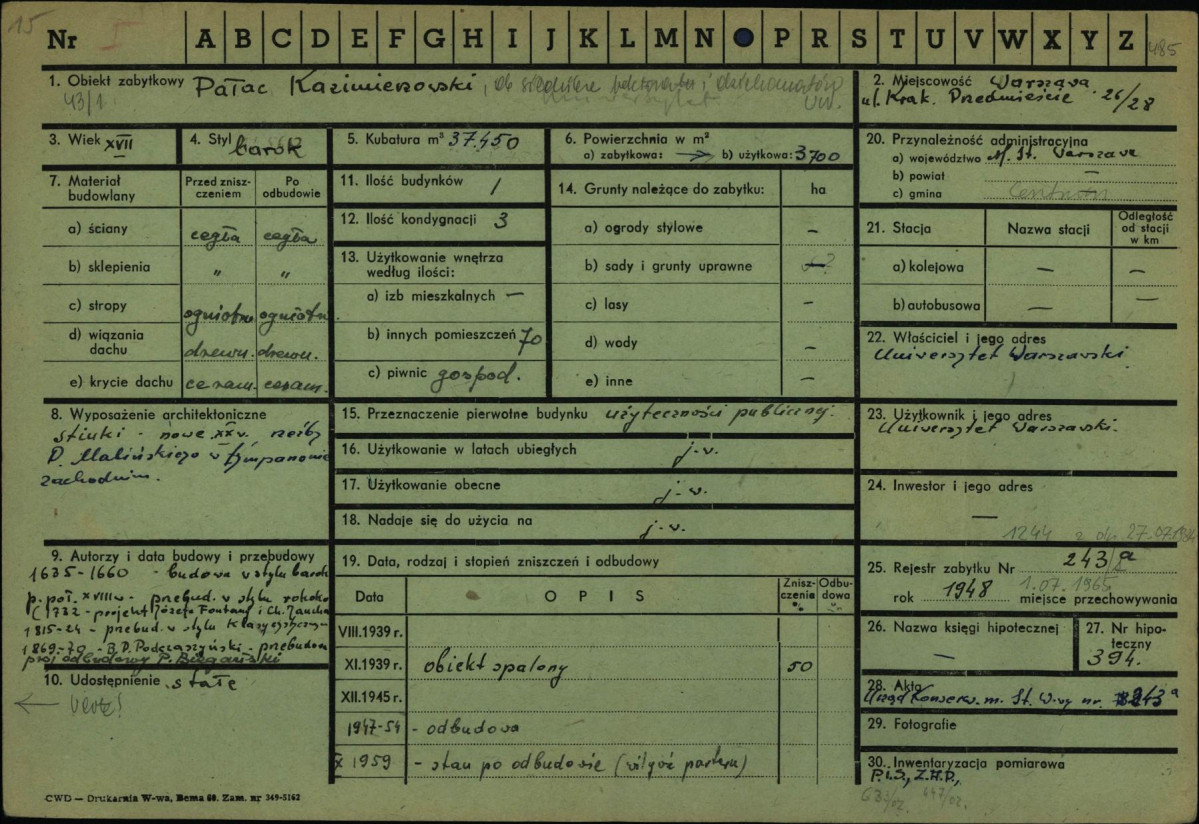 15
Nr I A B C D E F G H I J K L M N O P R S T U V W X Y Z 485
1. Obiekt zabytkowy Pałac Kazimierzowski,
43/1
2. Miejscowość Warszawa
ul. Krak. Przedmieście 26/28
3. Wiek XVII
4. Styl barok
5. Kubatura m³ 37.450
6. Powierzchnia w m²
a) zabytkowa: b) użytkowa: 3700
7. Materiał budowlany
Przed zniszczeniem
Po odbudowie
a) ściany cegła cegła
b) sklepienia „ „
c) stropy ogniotrw. ogniotrw.
d) wiązania dachu drewn. drewn.
e) krycie dachu ceram. ceram.
8. Wyposażenie architektoniczne
stiuki - nowe XX w., rzeźby
P. Malińskiego w tympanonie
zachodnim.
9. Autorzy i data budowy i przebudowy
1635-1660 - budowa w stylu barok
p. poł. XVIII w - przebud. w stylu rokoko
(1732 - projekt Józefa Fontany i Ch. Jaucha
1815-24 - przebud. w stylu klasycystycznym
1869-70 - B. P. Podczaszyński - przebudowa
proj. odbudowy P. Biegański
10. Udostępnienie stałe
11. Ilość budynków 1
12. Ilość kondygnacji 3
13. Użytkowanie wnętrza
według ilości:
a) izb mieszkalnych —
b) innych pomieszczeń 70
c) piwnic gospod.
14. Grunty należące do zabytku: ha
a) ogrody stylowe —
b) sady i grunty uprawne —
c) lasy —
d) wody —
e) inne —
15. Przeznaczenie pierwotne budynku użyteczności publicznej.
16. Użytkowanie w latach ubiegłych j.w.
17. Użytkowanie obecne j.w.
18. Nadaje się do użycia na j.w.
19. Data, rodzaj i stopień zniszczeń i odbudowy
Data OPIS Zniszczenie % Odbudowa %
VIII.1939 r.
XI.1939 r. obiekt spalony 50
XII.1945 r.
1947-54 - odbudowa
X 1959 - stan po odbudowie (wilgoć parteru)
20. Przynależność administracyjna
a) województwo M. St. Warszawa
b) powiat —
c) gmina Centrum
21. Stacja Nazwa stacji Odległość od stacji w km
a) kolejowa — —
b) autobusowa — —
22. Właściciel i jego adres
Uniwersytet Warszawski
23. Użytkownik i jego adres
Uniwersytet Warszawski.
24. Inwestor i jego adres
—
25. Rejestr zabytku Nr 243/a
rok 1948 1.07.1965 miejsce przechowywania
26. Nazwa księgi hipotecznej
—
27. Nr hipoteczny
394.
28. Akta
Urząd Konserw. m. St. W-wy nr. 243a
29. Fotografie
30. Inwentaryzacja pomiarowa
P.I.S., Z.H.P.,
CWD — Drukarnia W-wa, Bema 60. Zam. nr 349-5162